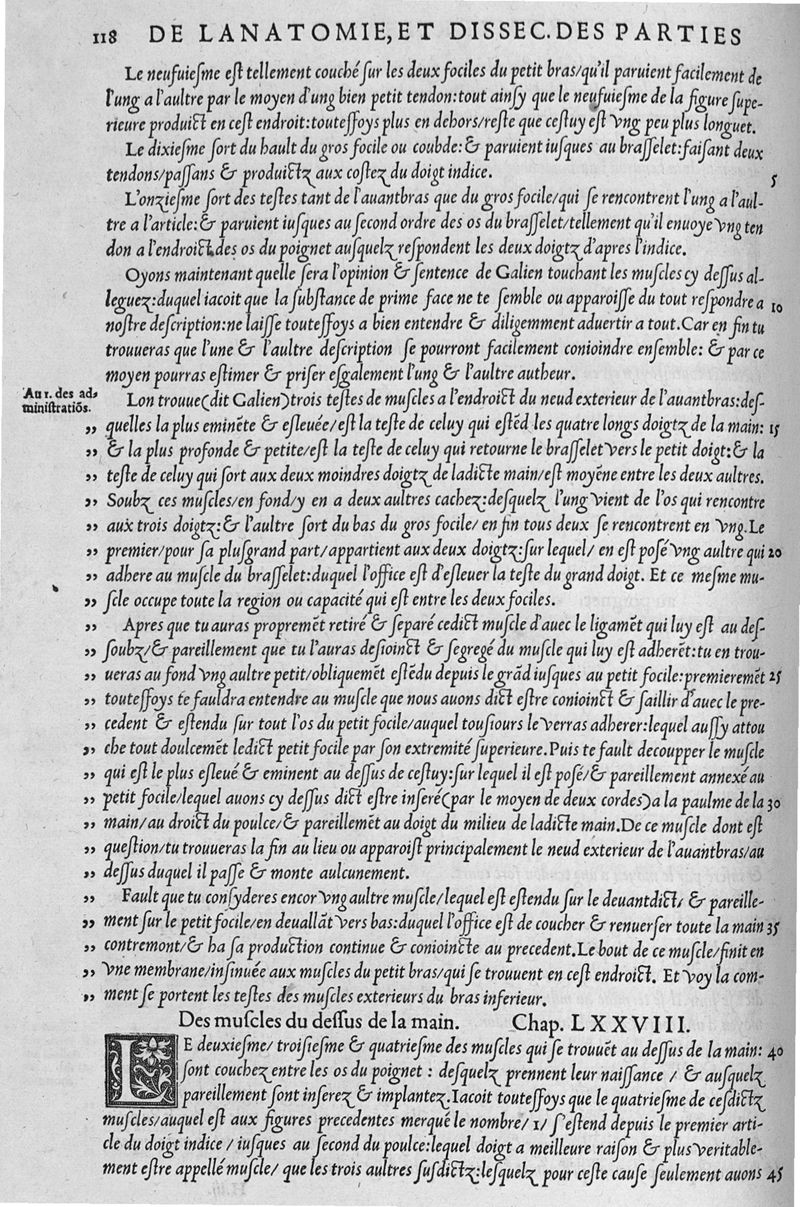 118 DE LANATOMIE, ET DISSEC. DES PARTIES
Le neufuiesme est tellement couché sur les deux fociles du petit bras/qu'il paruient facilement de
l'ung a l'aultre par le moyen d'ung bien petit tendon:tout ainsy que le neufuiesme de la figure supe-
rieure produict en cest endroit:touteffoys plus en dehors/reste que cestuy est vng peu plus longuet.
Le dixiesme sort du hault du gros focile ou coubde:& paruient iusques au brasselet:faisant deux
tendons/passans & produictz aux costez du doigt indice. 5
L'onziesme sort des testes tant de l'auantbras que du gros focile/qui se rencontrent l'ung a l'aul-
tre a l'article:& paruient iusques au second ordre des os du brasselet/tellement qu'il enuoye vng ten
don a l'endroict des os du poignet ausquelz respondent les deux doigtz d'apres l'indice.
Oyons maintenant quelle sera l'opinion & sentence de Galien touchant les muscles cy dessus al-
leguez:duquel iacoit que la substance de prime face ne te semble ou apparoisse du tout respondre a 10
nostre description:ne laisse touteffoys a bien entendre & diligemment aduertir a tout.Car en fin tu
trouueras que l'une & l'aultre description se pourront facilement conioindre ensemble: & par ce
moyen pourras estimer & priser esgalement l'ung & l'aultre autheur.
Au 1. des ad-
ministratiõs.
Lon trouue(dit Galien)trois testes de muscles a l'endroict du neud exterieur de l'auantbras:des-
,, quelles la plus eminẽte & esleuée/est la teste de celuy qui estẽd les quatre longs doigtz de la main: 15
,, & la plus profonde & petite/est la teste de celuy qui retourne le brasselet vers le petit doigt:& la
,, teste de celuy qui sort aux deux moindres doigtz de ladicte main/est moyẽne entre les deux aultres.
,, Soubz ces muscles/en fond/y en a deux aultres cachez:desquelz l'ung vient de l'os qui rencontre
,, aux trois doigtz:& l'aultre sort du bas du gros focile/ en fin tous deux se rencontrent en vng.Le
,, premier/pour sa plusgrand part/appartient aux deux doigtz:sur lequel/ en est posé vng aultre qui 20
,, adhere au muscle du brasselet:duquel l'office est d'esleuer la teste du grand doigt. Et ce mesme mu-
,, scle occupe toute la region ou capacité qui est entre les deux fociles.
,, Apres que tu auras propremẽt retiré & separé cedict muscle d'auec le ligamẽt qui luy est au des-
,, soubz/& pareillement que tu l'auras desioinct & segregé du muscle qui luy est adherẽt:tu en trou-
,, ueras au fond vng aultre petit/obliquemẽt estẽdu depuis le grãd iusques au petit focile:premieremẽt 25
,, touteffoys te fauldra entendre au muscle que nous auons dict estre conioinct & saillir d'auec le pre-
,, cedent & estendu sur tout l'os du petit focile/auquel tousiours le verras adherer:lequel aussy attou
,, che tout doulcemẽt ledict petit focile par son extremité superieure.Puis te fault decoupper le muscle
,, qui est le plus esleué & eminent au dessus de cestuy:sur lequel il est posé/& pareillement annexé au
,, petit focile/lequel auons cy dessus dict estre inseré(par le moyen de deux cordes)a la paulme de la 30
,, main/au droict du poulce/& pareillemẽt au doigt du milieu de ladicte main.De ce muscle dont est
,, question/tu trouueras la fin au lieu ou apparoist principalement le neud exterieur de l'auantbras/au
,, dessus duquel il passe & monte aulcunement.
,, Fault que tu consyderes encor vng aultre muscle/lequel est estendu sur le deuantdict, & pareille-
,, ment sur le petit focile/en deuallãt vers bas:duquel l'office est de coucher & renuerser toute la main 35
,, contremont/& ha sa production continue & conioincte au precedent.Le bout de ce muscle/finit en
,, vne membrane/insinuée aux muscles du petit bras/qui se trouuent en cest endroict. Et voy la com-
,, ment se portent les testes des muscles exterieurs du bras inferieur.
Des muscles du dessus de la main. Chap. LXXVIII.
LE deuxiesme/ troisiesme & quatriesme des muscles qui se trouuẽt au dessus de la main: 40
sont couchez entre les os du poignet : desquelz prennent leur naissance / & ausquelz
pareillement sont inserez & implantez.Iacoit touteffoys que le quatriesme de cesdictz
muscles/auquel est aux figures precedentes merqué le nombre/ 1/ s'estend depuis le premier arti-
cle du doigt indice / iusques au second du poulce:lequel doigt a meilleure raison & plus veritable-
ment estre appellé muscle/ que les trois aultres susdictz:lesquelz pour ceste cause seulement auons 45